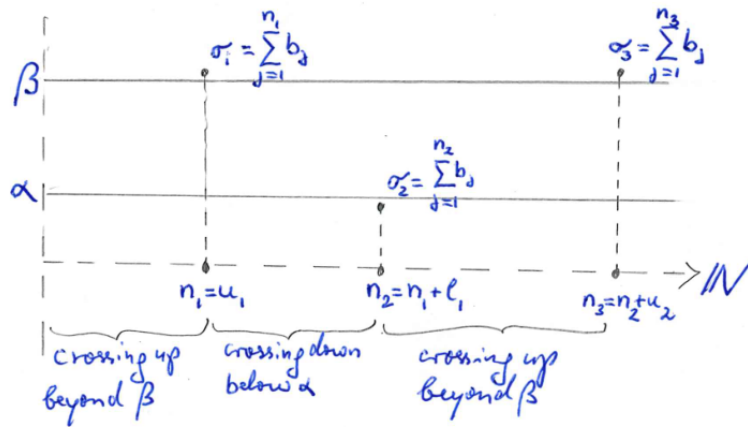 β
σ₁ = ∑_{j=1}^{n₁} b_j
σ₃ = ∑_{j=1}^{n₃} b_j
α
σ₂ = ∑_{j=1}^{n₂} b_j
n₁=u₁
n₂=n₁+l₁
n₃=n₂+u₂
ℕ
crossing up
beyond β
crossing down
below α
crossing up
beyond β